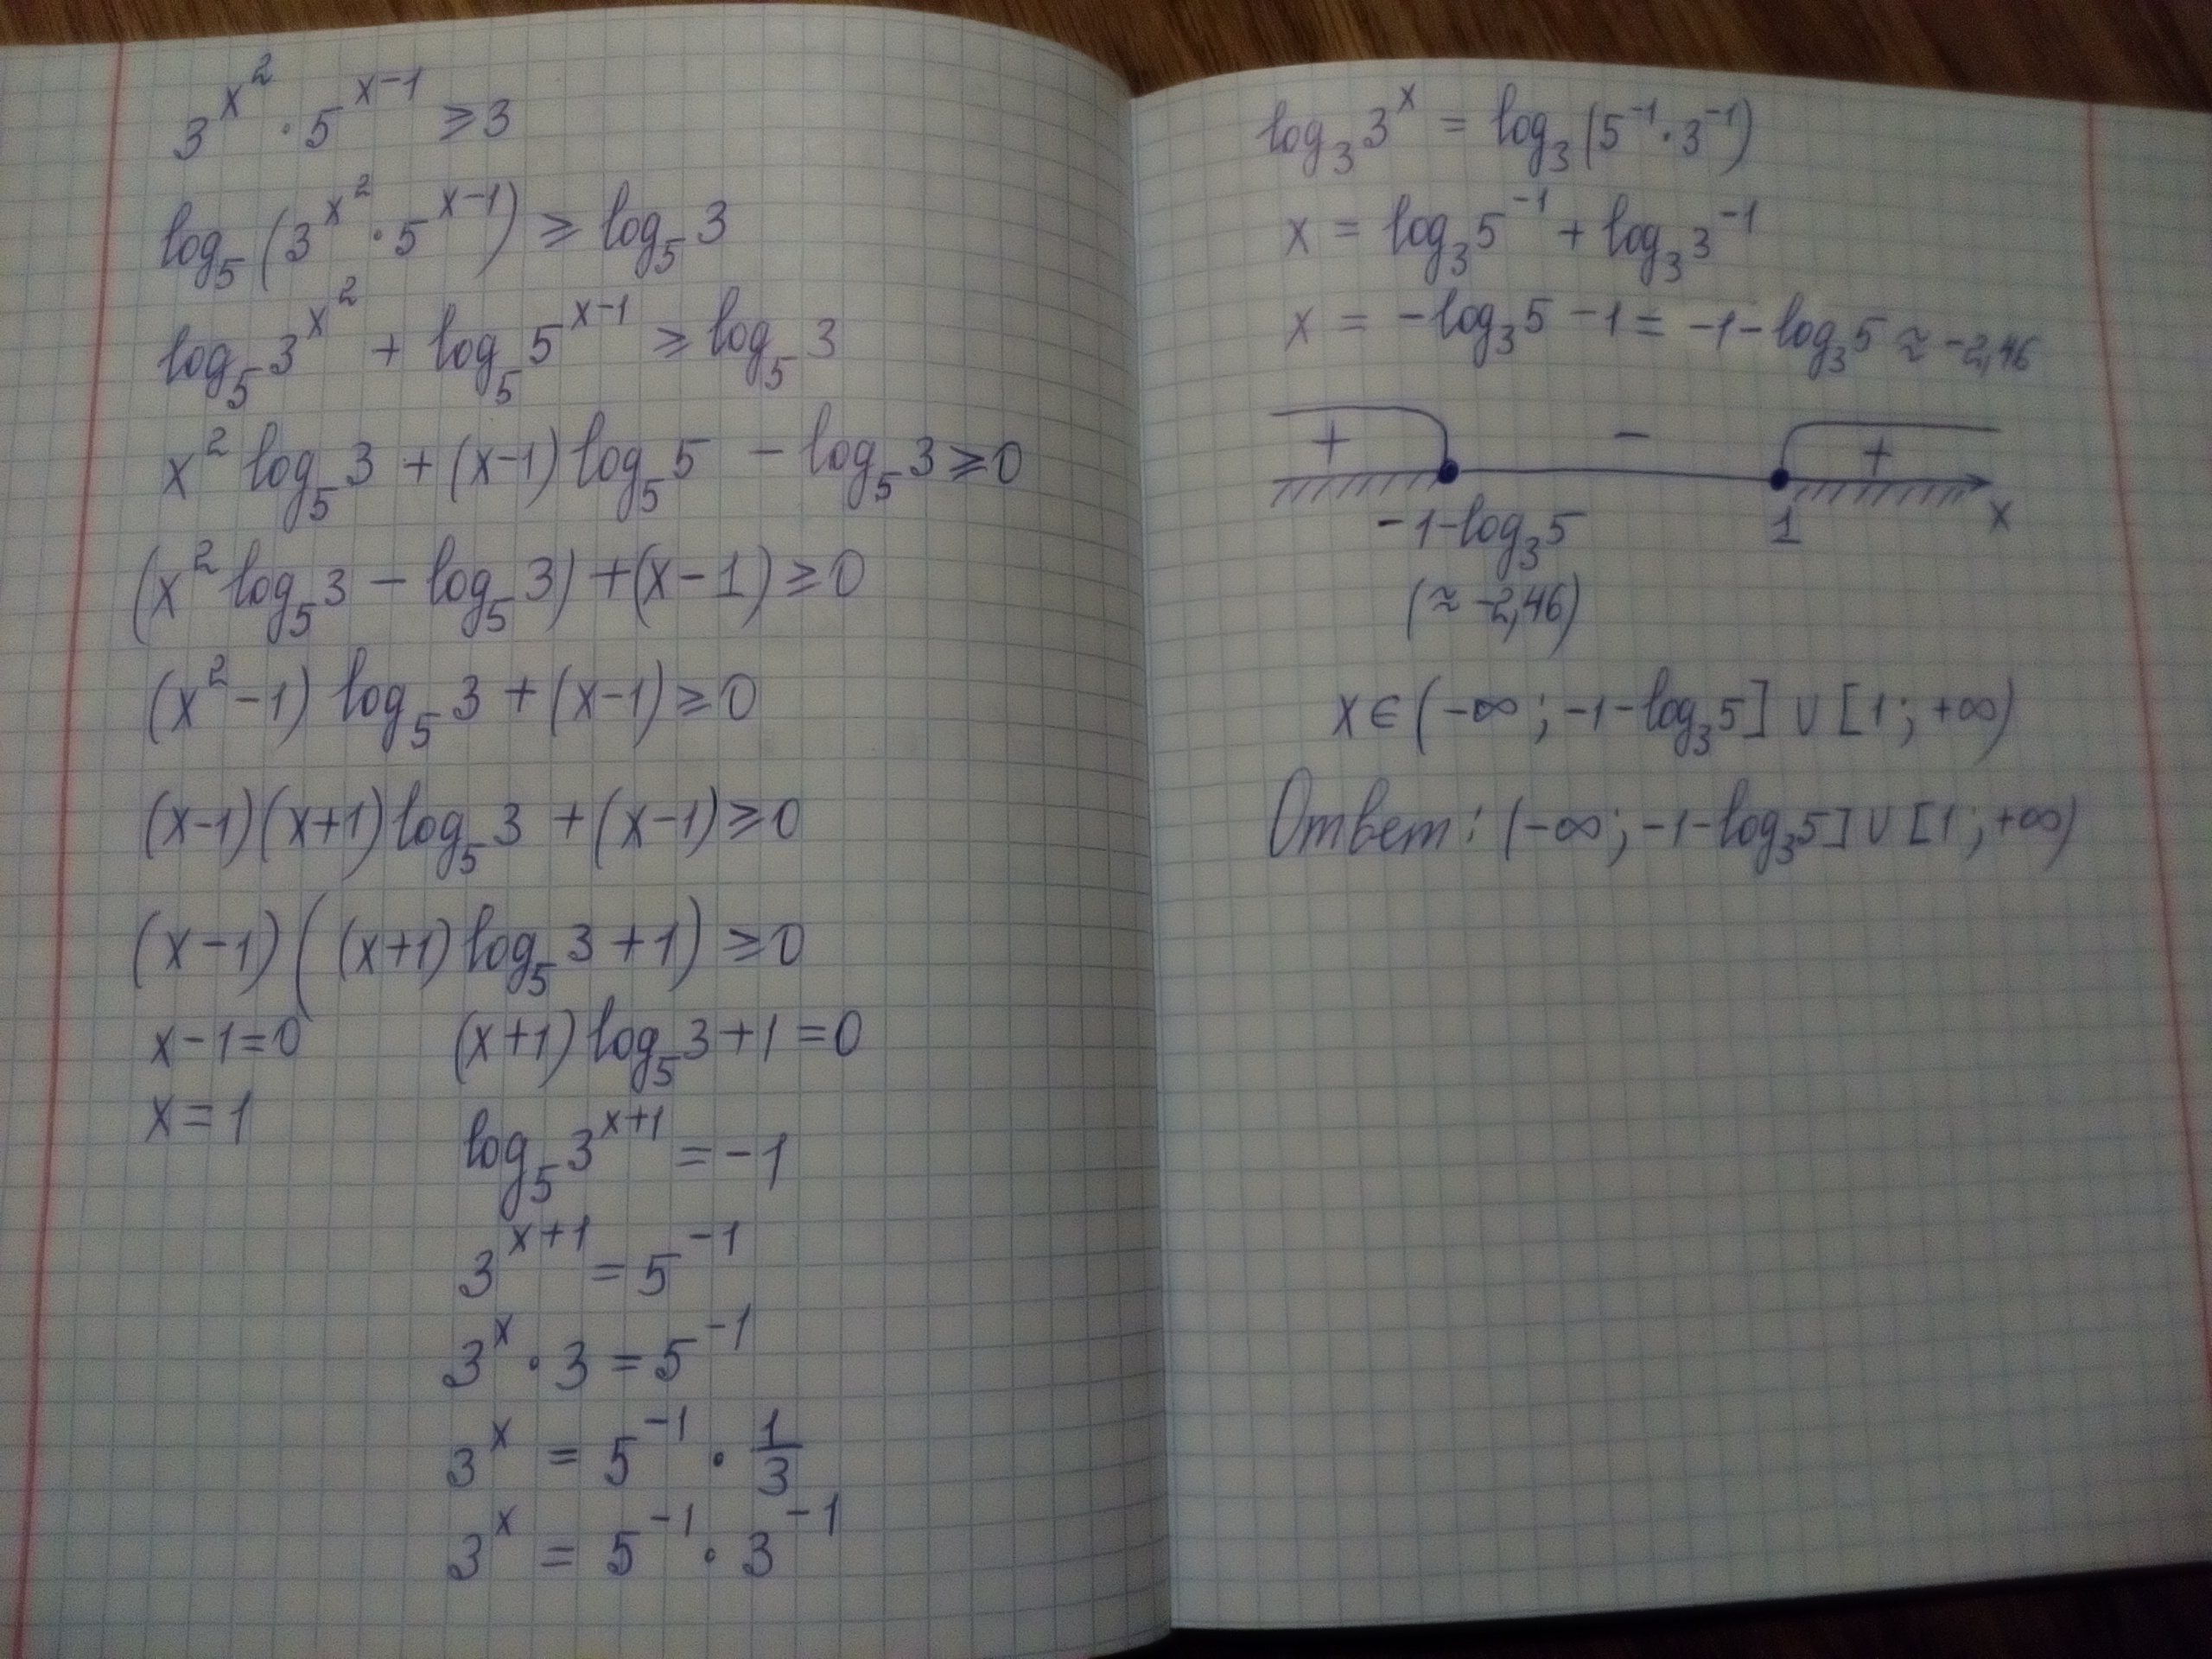 3^{x^2} · 5^{x-1} ≥ 3
log_5 (3^{x^2} · 5^{x-1}) ≥ log_5 3
log_5 3^{x^2} + log_5 5^{x-1} ≥ log_5 3
x^2 log_5 3 + (x-1) log_5 5 - log_5 3 ≥ 0
(x^2 log_5 3 - log_5 3) + (x-1) ≥ 0
(x^2 - 1) log_5 3 + (x-1) ≥ 0
(x-1)(x+1) log_5 3 + (x-1) ≥ 0
(x-1)((x+1) log_5 3 + 1) ≥ 0
x-1=0 (x+1) log_5 3 + 1 = 0
x=1
log_5 3^{x+1} = -1
3^{x+1} = 5^{-1}
3^x · 3 = 5^{-1}
3^x = 5^{-1} · 1/3
3^x = 5^{-1} · 3^{-1}
log_3 3^x = log_3 (5^{-1} · 3^{-1})
x = log_3 5^{-1} + log_3 3^{-1}
x = -log_3 5 - 1 = -1 - log_3 5 ≈ -2,46
+ - +
-1-log_3 5 1 x
(≈ -2,46)
x ∈ (-∞; -1-log_3 5] ∪ [1; +∞)
Ответ: (-∞; -1-log_3 5] ∪ [1; +∞)